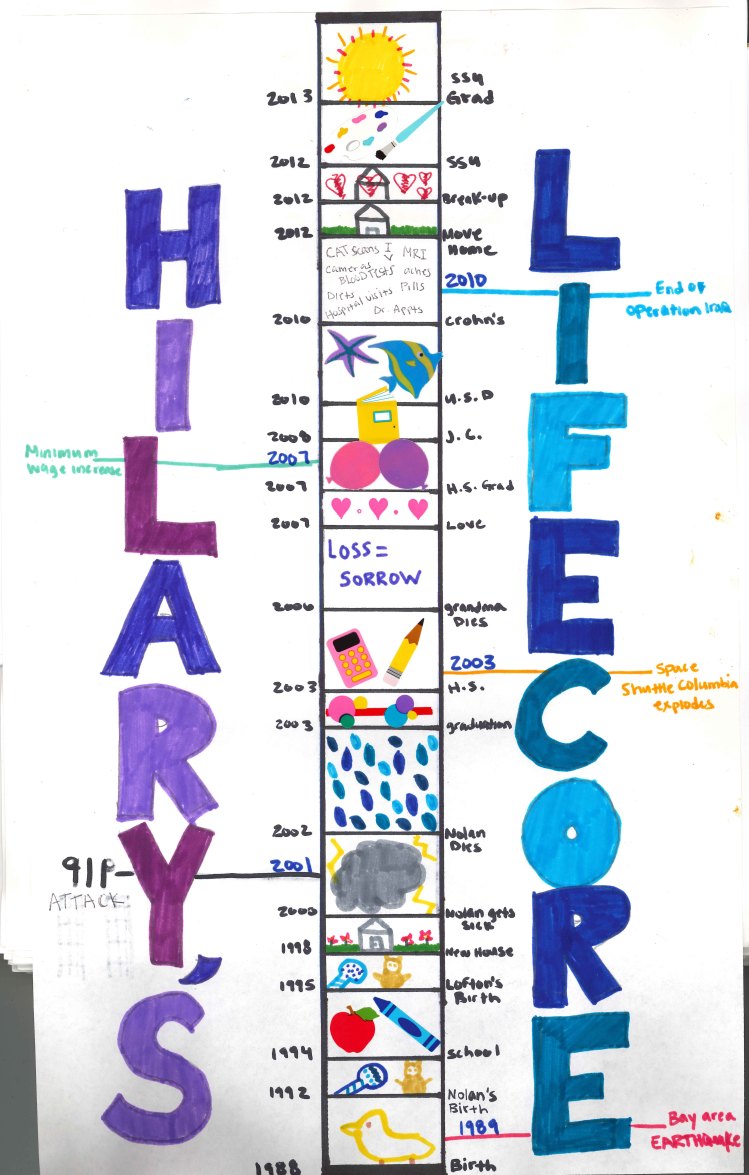 HILARY'S
LIFE CORE
2013
SSU
Grad
2012
SSU
2012
Break-up
2012
Move
Home
CAT scans IV MRI
Cameras
Blood Tests aches
Diets Pills
Hospital visits
Dr. Appts
2010
End of
Operation Iraq
2010
Crohn's
2010
U.S.D
2008
J.C.
Minimum
Wage increase
2007
2007
H.S. Grad
2007
Love
LOSS =
SORROW
2006
grandma
Dies
2003
Space
Shuttle Columbia
explodes
2003
H.S.
2003
graduation
2002
Nolan
Dies
911
ATTACK
2001
2000
Nolan gets
sick
1998
New House
1995
Lofton's
Birth
1994
school
1992
Nolan's
Birth
1989
Bay area
EARTHquake
1988
Birth